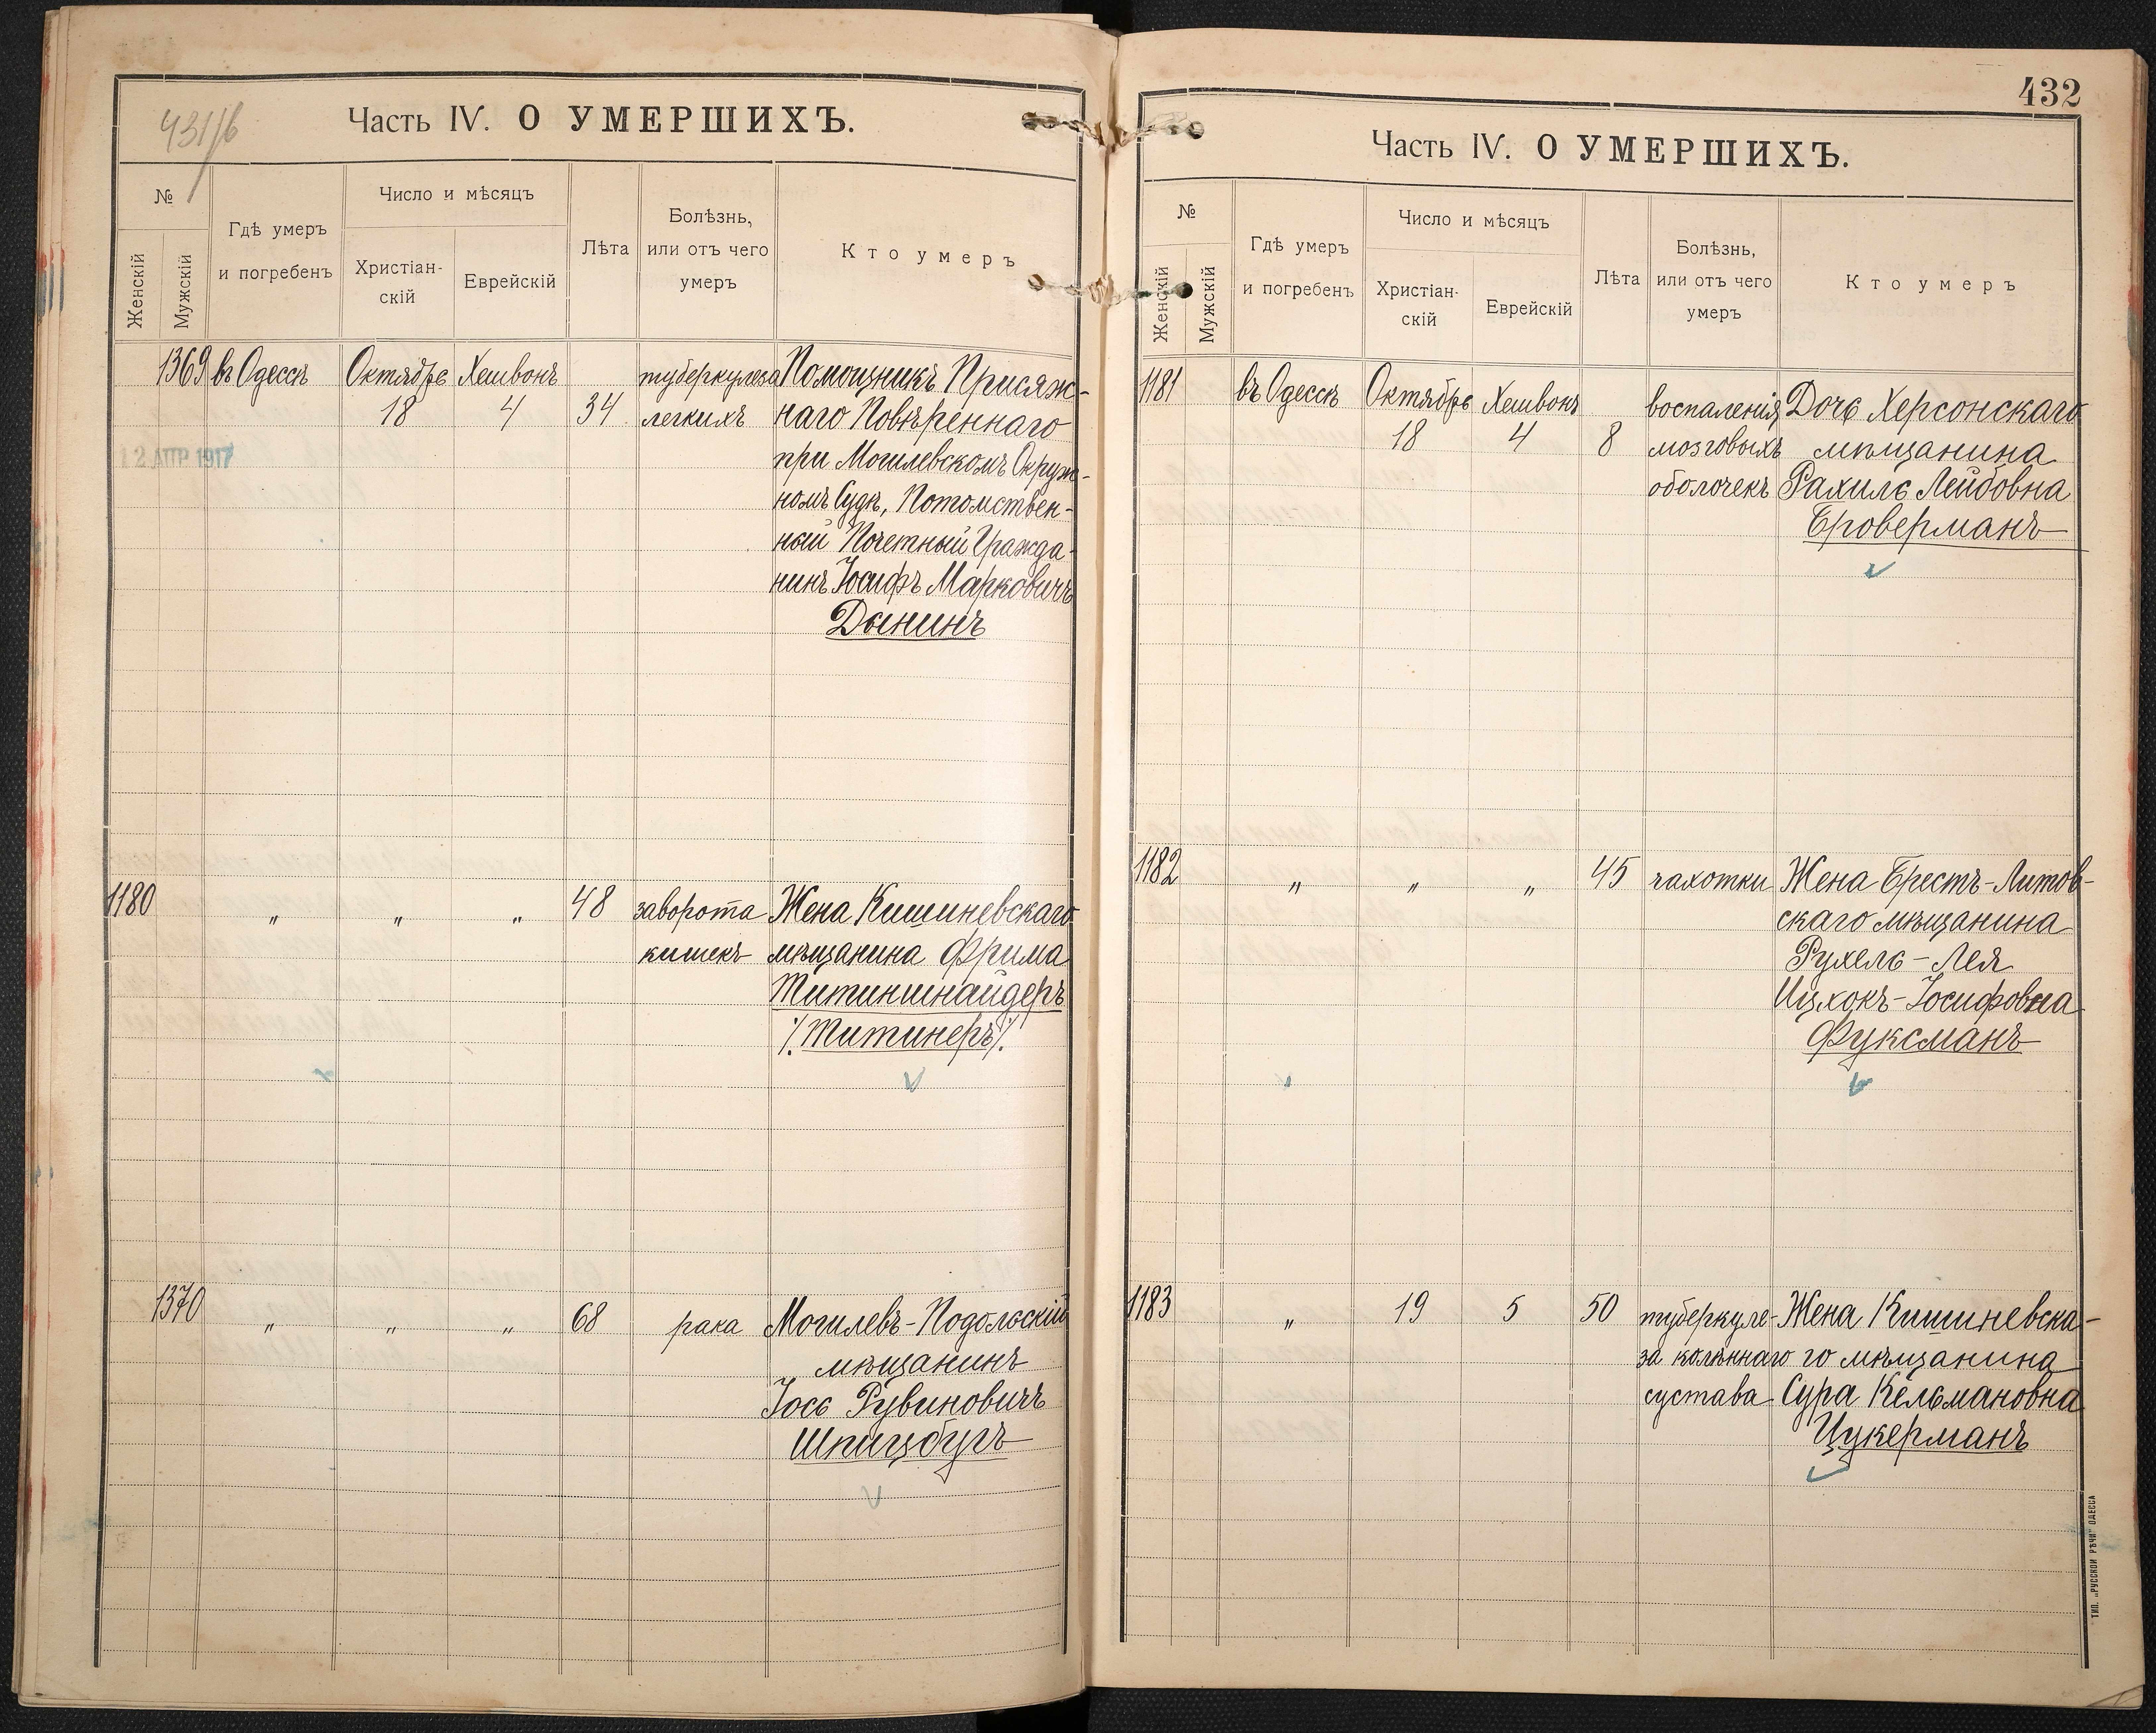 431/б
Часть IV. О УМЕРШИХЪ.
№
Женскій
Мужскій
Гдѣ умеръ
и погребенъ
Число и мѣсяцъ
Христіан-
скій
Еврейскій
Лѣта
Болѣзнь,
или отъ чего
умеръ
Кто умеръ
1369 въ Одессѣ Октября Хешвонъ туберкулеза Помощникъ Присяж-
18 4 34 легкихъ наго Повѣреннаго
12 АПР 1917 при Могилевскомъ Окруж-
номъ Судѣ, Потомствен-
ный Почетный Гражда-
нинъ Іосифъ Марковичъ
Дынинъ
1180 " " " 48 заворота Жена Кишиневскаго
кишекъ мѣщанина Фрима
Титиншнайдеръ
/.Титинеръ/.
1370 " " " 68 рака Могилевъ-Подольскій
мѣщанинъ
Іось Рувиновичъ
Шпицбугъ
432
Часть IV. О УМЕРШИХЪ.
№
Женскій
Мужскій
Гдѣ умеръ
и погребенъ
Число и мѣсяцъ
Христіан-
скій
Еврейскій
Лѣта
Болѣзнь,
или отъ чего
умеръ
Кто умеръ
1181 въ Одессѣ Октября Хешвонъ воспаленія Дочь Херсонскаго
18 4 8 мозговыхъ мѣщанина
оболочекъ Рахиль Лейбовна
Броверманъ
1182 " " " 45 чахотки Жена Брестъ-Литов-
скаго мѣщанина
Рухель-Лея
Ицхокъ-Іосифовна
Фуксманъ
1183 " 19 5 50 туберкуле- Жена Кишиневска-
за колѣннаго го мѣщанина
сустава Сура Кельмановна
Цукерманъ
ТИП. „РУССКОЙ РѢЧИ" ОДЕССА